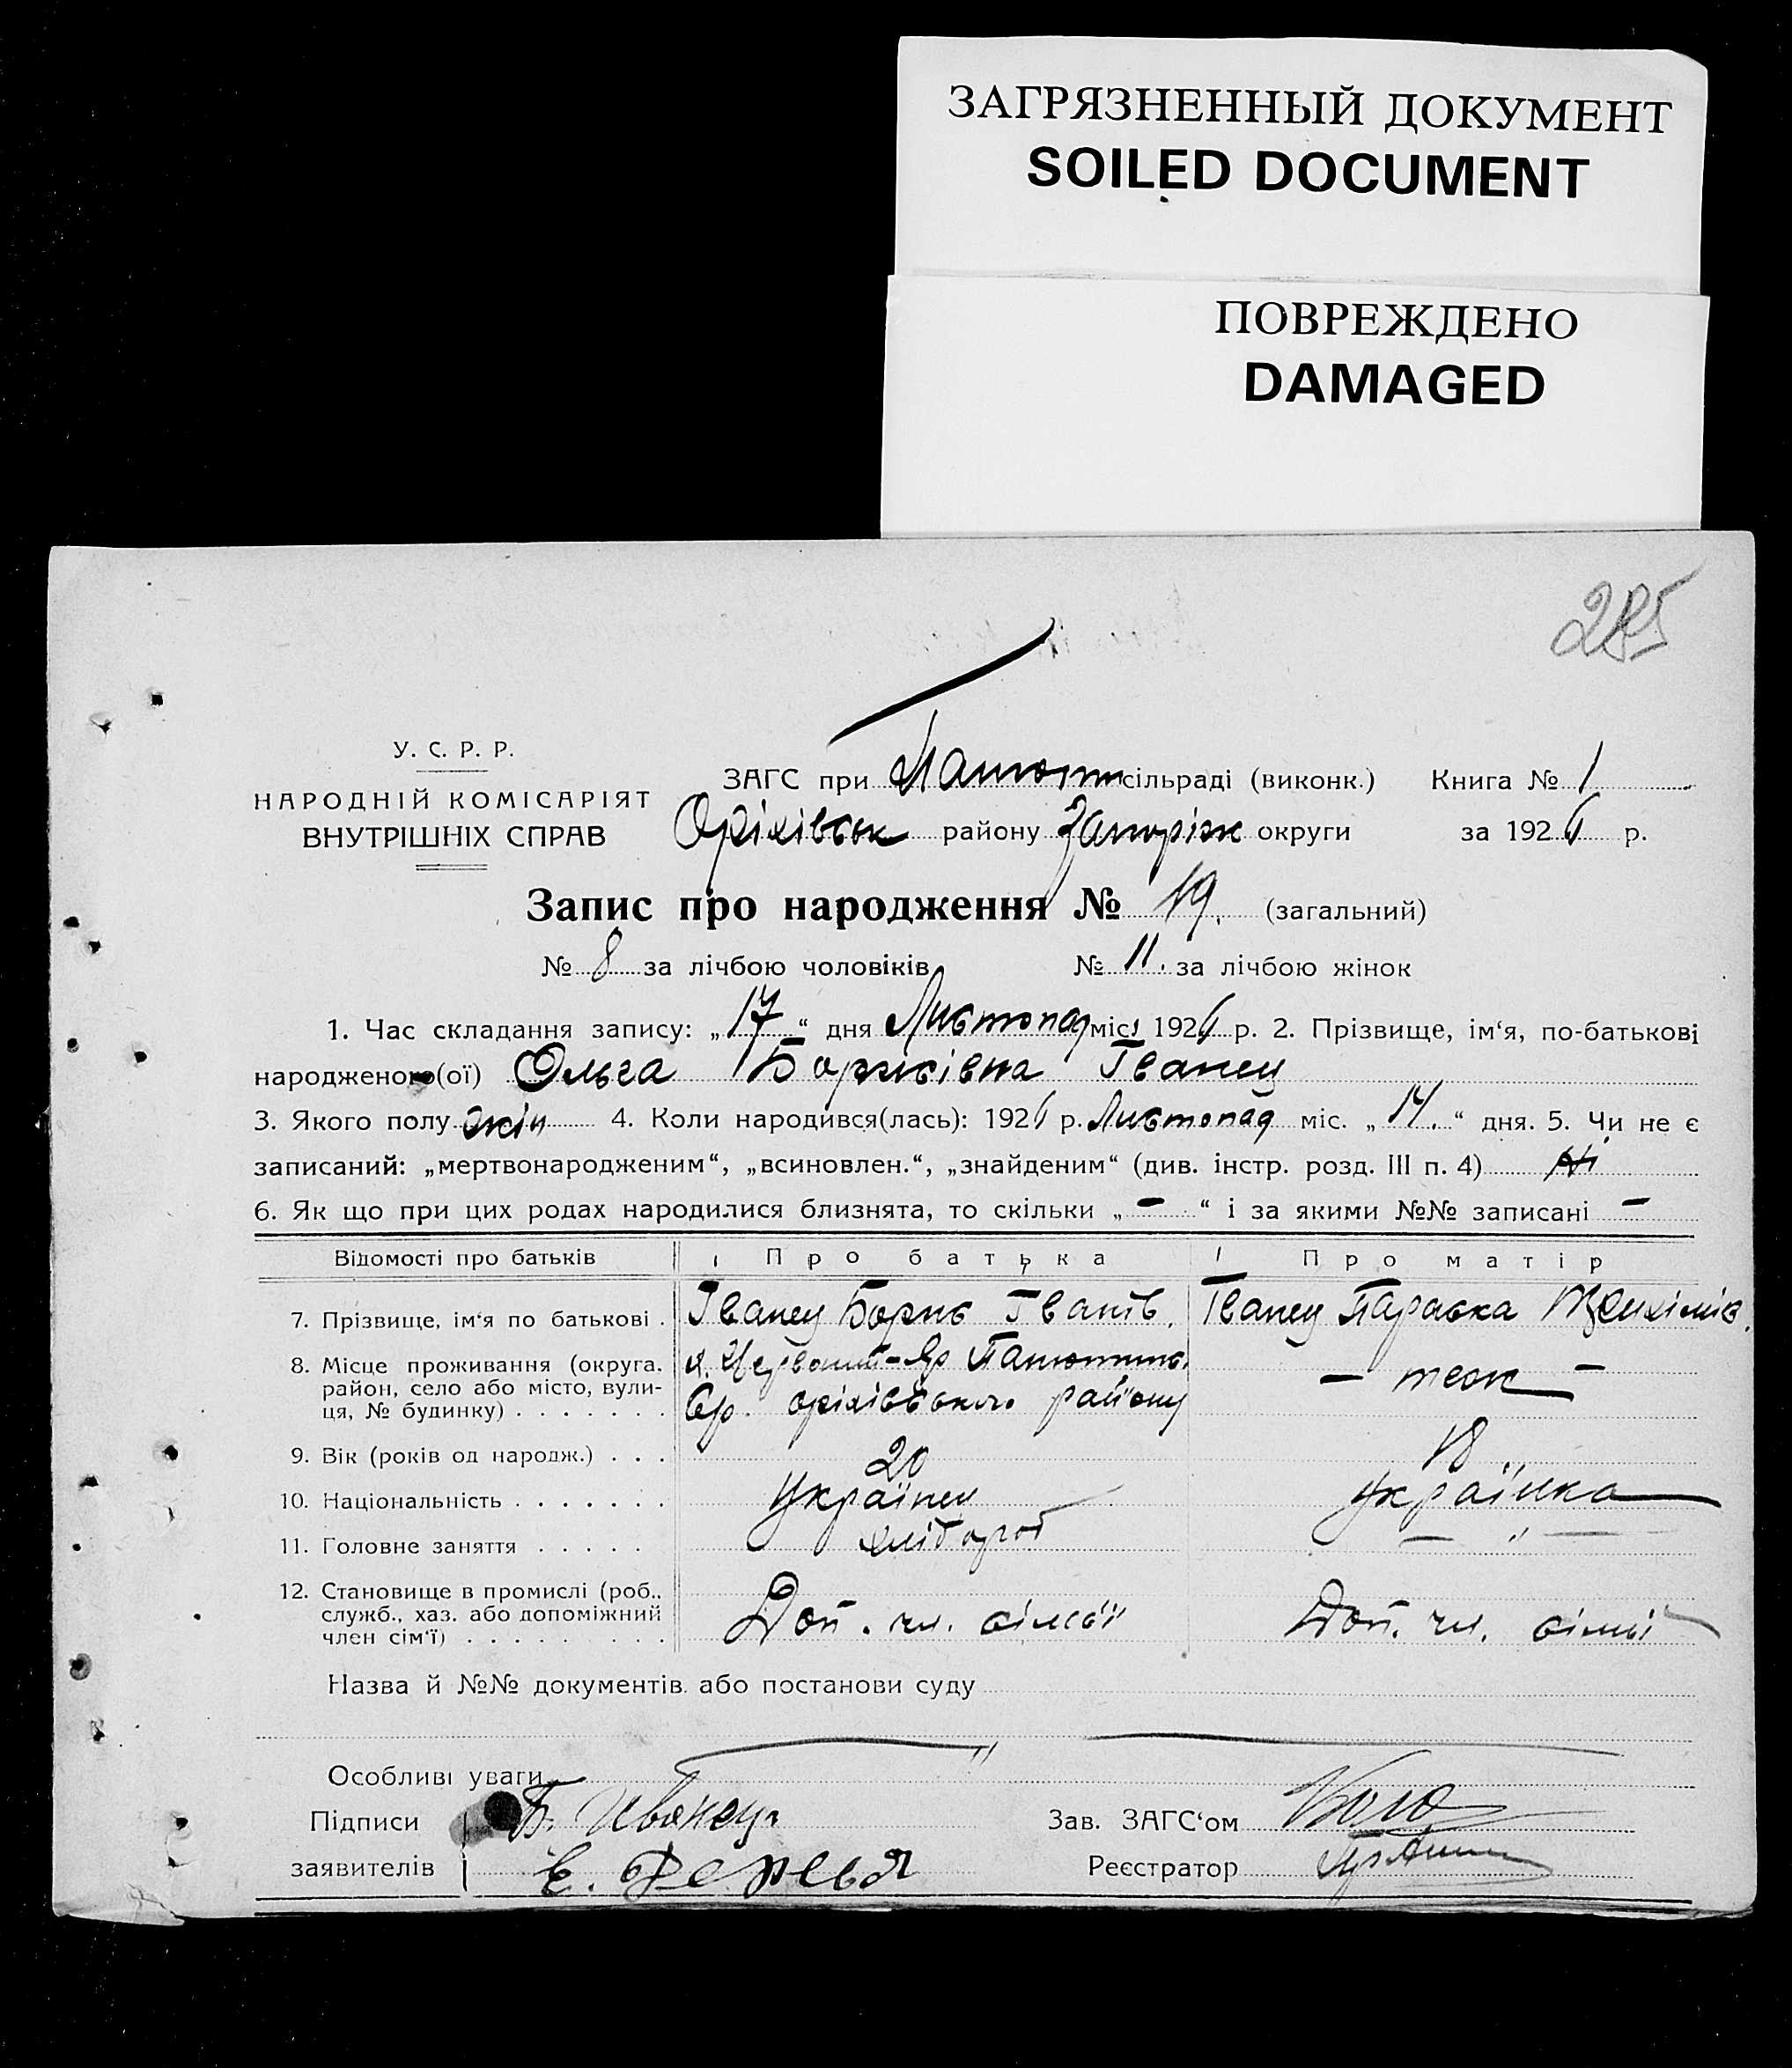 ЗАГРЯЗНЕННЫЙ ДОКУМЕНТ
SOILED DOCUMENT
ПОВРЕЖДЕНО
DAMAGED
285
У. С. Р. Р.
НАРОДНІЙ КОМІСАРІЯТ
ВНУТРІШНІХ СПРАВ
ЗАГС при сільраді (виконк.) Книга № 1
Оріхівськ району Запоріж округи за 1926 р.
Запис про народження № 19. (загальний)
№ 8 за лічбою чоловіків № 11. за лічбою жінок
1. Час складання запису: „17“ дня Листопад міс. 1926 р. 2. Прізвище, ім‘я, по-батькові
народженого(ої) Ольга Борисівна Іванец
3. Якого полу жін 4. Коли народився(лась): 1926 р. Листопад міс. „14.“ дня. 5. Чи не є
записаний: „мертвонародженим“, „всиновлен.“, „знайденим“ (див. інстр. розд. III п. 4) Ні
6. Як що при цих родах народилися близнята, то скільки „ – “ і за якими №№ записані –
Відомості про батьків Про батька Про матір
7. Прізвище, ім‘я по батькові . Іванец Борис Іванів. Іванец Параска
8. Місце проживання (округа, район, село або місто, вули-ця, № будинку) . . . . . . .
оріхівського району
– теж –
9. Вік (років од народж.) . . . 20 18
10. Національність . . . . . . . Українец Українка
11. Головне заняття . . . . . хлібороб — " —
12. Становище в промислі (роб., служб., хаз. або допоміжний член сім‘ї) . . . . . . . . . Доп. чл. сімьї Доп. чл. сімьї
Назва й №№ документів або постанови суду
Особливі уваги
Підписи Б. Иванец Зав. ЗАГС‘ом
заявителів Реєстратор